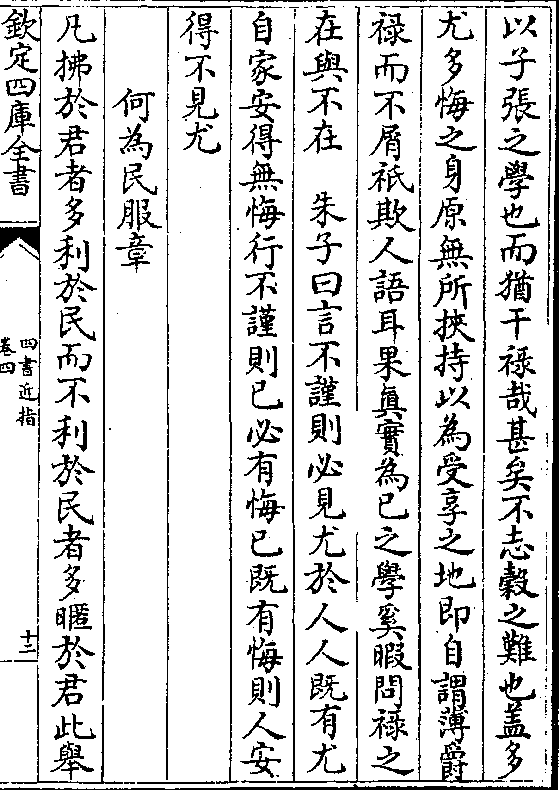 以子張之學也而猶干祿哉甚矣不志穀之難也盖多
尤多悔之身原無所挾持以為受享之地即自謂薄爵
祿而不屑祇欺人語耳果眞實為已之學奚暇問祿之
在與不在　朱子曰言不謹則必見尤於人人既有尤
自家安得無悔行不謹則已必有悔已既有悔則人安
得不見尤
何為民服章
凡拂於君者多利於民而不利於民者多暱於君此舉
欽定四庫全書
四書近指
卷四
十三